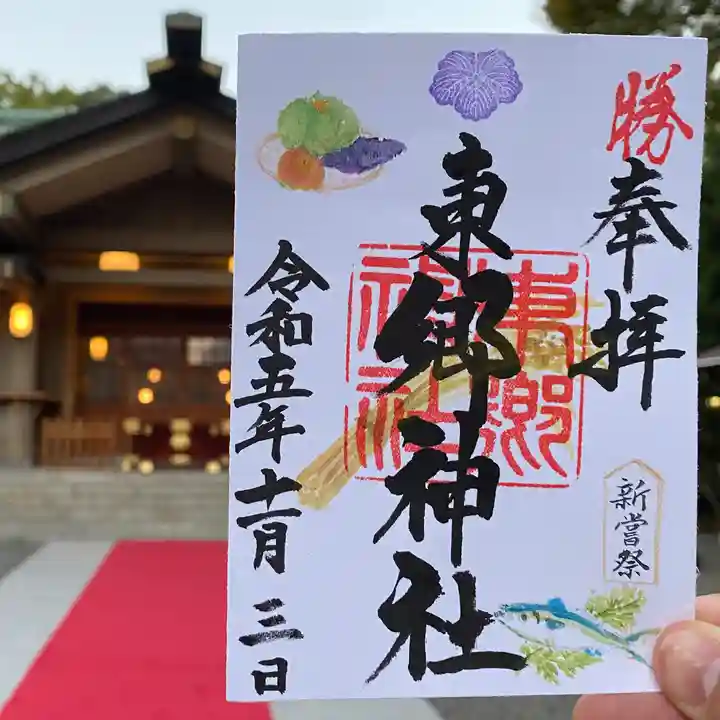 勝
奉拝
新嘗祭
東郷神社
東郷
神社
令和五年十一月三日